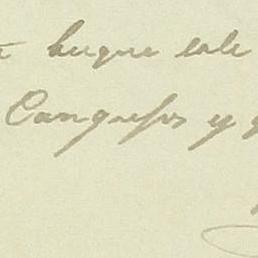 buque sale
Cangrejos y